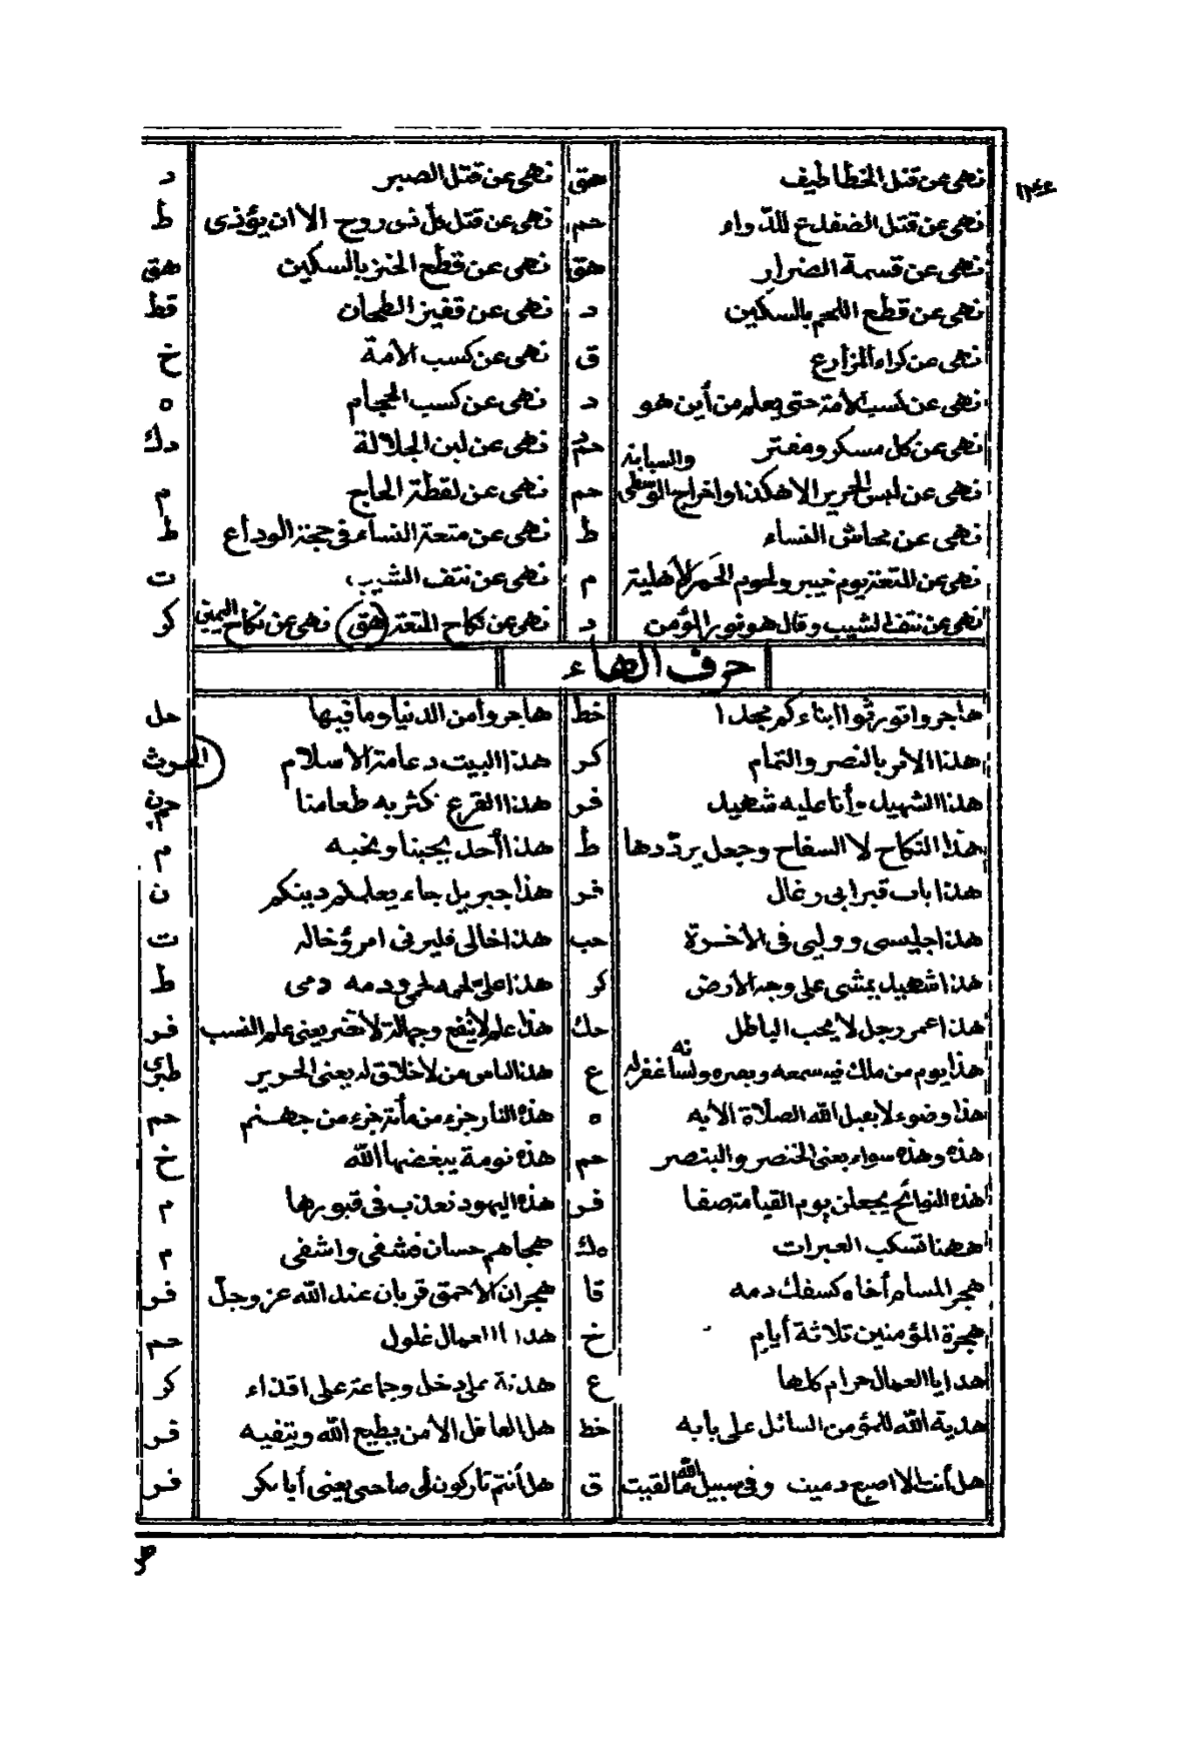 نهى عن قتل الخطاطيف هق نهى عن قتل الصبر د
نهى عن قتل الضفدع للدواء حم نهى عن قتل كل ذى روح الا ان يؤذى ط
نهى عن قسمة الضرار هق نهى عن قطع الخبز بالسكين هق
نهى عن قطع اللحم بالسكين د نهى عن قفيز الطحان قط
نهى عن كراء المزارع ق نهى عن كسب الأمة خ
نهى عن كسب الأمة حتى يعلم من أين هو د نهى عن كسب الحجام ه
نهى عن كل مسكر ومفتر حم د نهى عن لبن الجلالة د ك
نهى عن لبس الحرير الا هكذا واخراج الوسطى والسبابة حم نهى عن لقطة الحاج م
نهى عن محاش النساء ط نهى عن متعة النساء فى حجة الوداع ط
نهى عن المتعة يوم خيبر ولحوم الحمر الأهلية م نهى عن نتف الشيب ت
نهى عن نتف الشيب وقال هو نور المؤمن د نهى عن نكاح المتعة (هق) نهى عن نكاح كر
حرف الهاء
هاجروا تورثوا ابناءكم مجدا خط هاجروا من الدنيا وما فيها حل
هذا الأمر بالنصر والتمام كر هذا البيت دعامة الأسلام
هذا الشهيد وأنا عليه شهيد فر هذا القرع نكثر به طعامنا
هذا النكاح لا السفاح وجعل يرددها ط هذا أحد يحبنا ونحبه م
هذا باب قبر ابى رغال فر هذا جبريل جاء يعلمكم دينكم ن
هذا جليسى ووليى فى الآخرة حب هذا خالى فليرنى امرؤ خاله ت
هذا شهيد يمشى على وجه الأرض كر هذا على لحمه لحمى ودمه دمى ط
هذا عمر رجل لا يحب الباطل حك هذا علم لا ينفع وجهالة لا تضر يعنى علم النسب فر
هذا يوم من ملك فيه سمعه وبصره ولسانه غفر له ع هذا لباس من لا خلاق له يعنى الحرير
هذا وضوء لا يقبل الله الصلاة الا به ه هذه النار جزء من مأنة جزء من جهنم حم
هذه وهذه سواء يعنى الخنصر والبنصر حم هذه نومة يبغضها الله خ
هذه النوائح يجعلن يوم القيامة صفا فر هذه اليهود تعذب فى قبورها م
ههنا تسكب العبرات ه ك هجاهم حسان فشفى واشفى م
هجر المسلم أخاه كسفك دمه قا هجران الأحمق قربان عند الله عز وجل فر
هجرة المؤمنين ثلاثة أيام خ هدايا العمال غلول حم
هدايا العمال حرام كلها ع هدنة على دخل وجماعة على اقذاء كر
هدية الله للمؤمن السائل على بابه خط هل العاقل الا من يطيع الله ويتقيه فر
هل أنت الا اصبع دميت وفى سبيل الله ما لقيت ق هل أنتم تاركون لى صاحبى يعنى أبا بكر فر